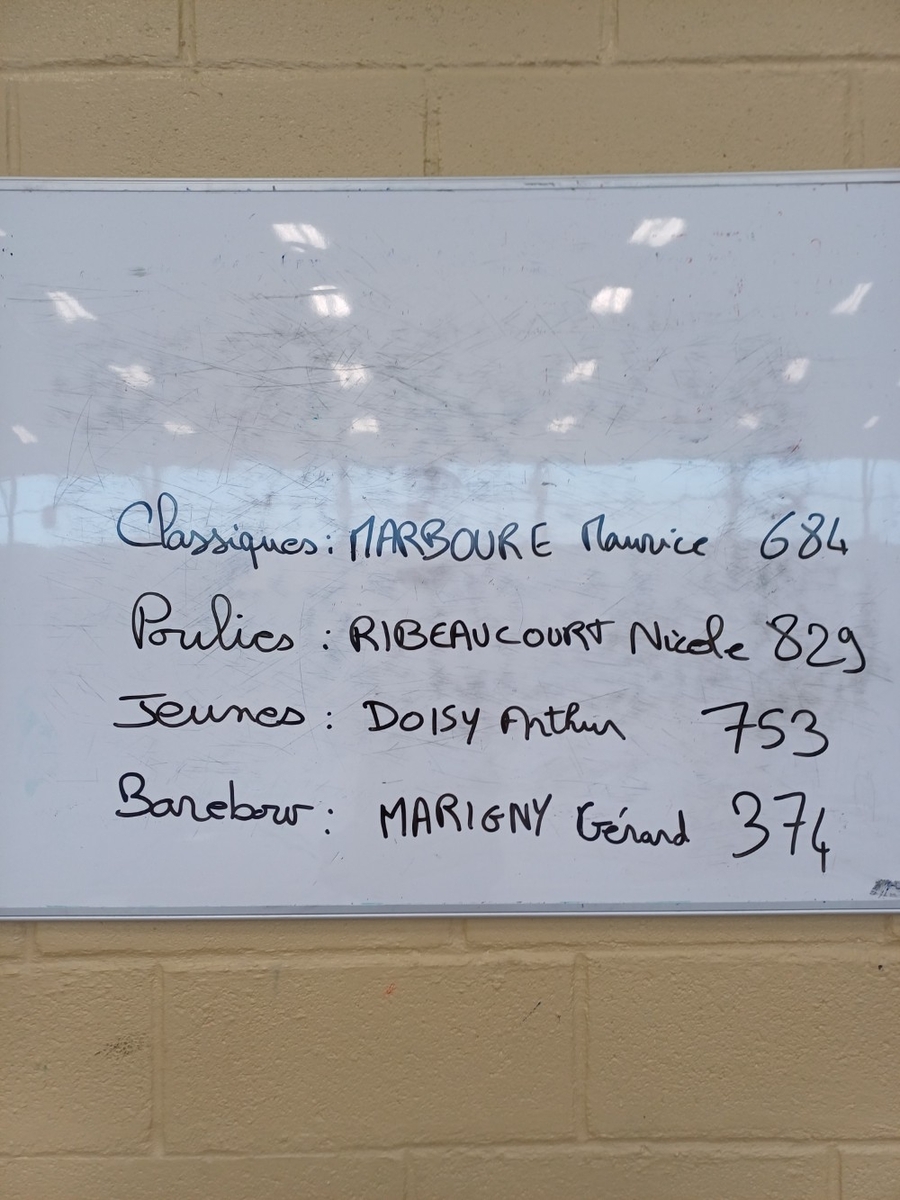 Classiques : MARBOURE Maurice 684
Poulies : RIBEAUCOURT Nicole 829
Jeunes : DOISY Arthur 753
Barebow : MARIGNY Gérard 374